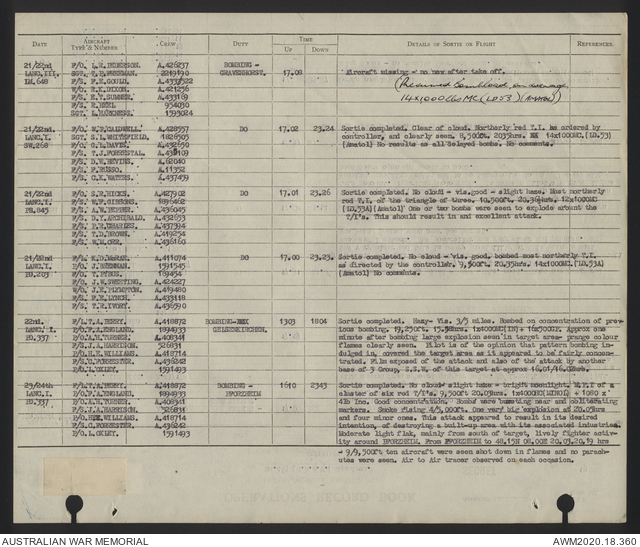 DATE AIRCRAFT TYPE & NUMBER CREW DUTY TIME UP DOWN DETAILS OF SORTIE OR FLIGHT REFERENCES.
21/22nd BOMBING- 17.08 Aircraft missing - no news after take off.
LANC.III. SGT. 2219190 GRAVENHORST.
LM.648 F/S. F.E. GOULD. A.433522
W/O. R.K. DIXON. A.421236
F/S. E.T. SUMNER. A.433189 14x1000lbs MC (LD53) (Amatol)
F/S. 954030
SGT. 1593024
21/22nd F/O. W.P. CALDWELL. A.428557 DO 17.02 23.24 Sortie completed. Clear of cloud. Northerly red T.I. as ordered by
LANC.I. SGT. S. WHITEFIELD. 1826505 controller, and clearly seen. 8,500ft. 2035hrs. 14x1000MC.(LD.53)
SW.268 F/O. G.L. DAVEY. A.432650 (Amatol) No results as all delayed bombs. No comments.
F/S. T.J. FORRESTAL.
F/S. D.W. BEVINS. A.62040
F/S. F. RUSSO. A.11352
F/S. C.K. WATERS. A.437459
21/22nd F/O. S.E. HICKS. A.427902 DO 17.01 23.26 Sortie completed. No cloud - vis.good - slight haze. Most northerly
LANC.I. F/S. W.P. GIBBONS. 1896462 red T.I. of the triangle of three. 10,500ft. 20.36hrs. 12x1000MC
PB.845 F/S. A.W. HEPPER. A.436045 (LD.53A)(Amatol) One or two bombs were seen to explode around the
F/S. D. ARCHIBALD. A.432653 T/I's. This should result in and excellent attack.
F/S. P.R. CHARLES. A.437394
F/S. T.D. BROWN. A.419254
F/S. W. M. ORR. A.436160
21/22nd A.411074 DO 17.00 23.23. Sortie completed. No cloud - vis. good, bombed most northerly T.I.
LANC.I. F/O. J. 1591545 as directed by the controller. 9,500ft. 20.35hrs. 14x1000MC.(LD.53A)
PD.203 F/O. T. 189454 (Amatol) No comments.
F/O. J.W. SWEETING. A.424227
F/O. J.W. PLYMPTON. A.419480
F/S. F.W. LYNCH. A.433118
F/S. T.R. IVORY. A.436590
22nd. F/O. L.A. BERRY. A.418872 BOMBING- 1303 1804 Sortie completed. Hazy- Vis. 3/5 miles. Bombed on concentration of prev-
LANC. I. F/O. F.A. ENGLAND. 1894933 GEILENKIRCHEN. ious bombing. 19,250ft. 1x4000HC(IN)+ 16x500GP. Approx one
PD.337 F/O. A.H. TURNER. A.408341 minute after bombing large explosion seen in target area- orange colour
F/S. J.A. HARRISON. 526831 flames clearly seen. Pilot is of the opinion that pattern bombing in-
F/O. H.E. WILLIAMS. A.418714 dulged in, covered the target area as it appeared to be fairly concen-
F/S. C. FORRESTER. A.436242 trated. Film exposed of this attack and also of the attack by another
F/O. L. OXLEY. 1591493 base of 3 Group, S.S.W. of this target at approx 16.01/16.02hrs.
23/24th F/O. L.A. BERRY. A.418872 BOMBING - 1610 2343 Sortie completed. No cloud- slight haze - bright moonlight. M.P.I of a
LANC.I. F/O. F.A. ENGLAND. 1894933 PFORZHEIM cluster of six red T/I's. 9,500ft. 20.03hrs. 1x4000HC(MINOL) + 1080 x
PD.337 F/O. A.H. TURNER. A.408341 4lb inc. Good concentration. Bombs were bursting near and obliterating
F/S. J.A. HARRISON. 526831 markers. Smoke rising 4/5,000ft. One very big explosion at 20.03hrs
F/O. H.E. WILLIAMS. A.418714 and four minor ones. This attack appeared to result in its desired
F/S. C. FORRESTER. A.436242 intention, of destroying a built-up area with its associated industries.
F/O. L. OXLEY. 1591493 Moderate light flak, mainly from south of target, lively fighter activ-
ity around PFORZHEIM. From PFORZHEIM to 48.15N 08.00E 20.03-20.19 hrs
- 9/9,500ft ten aircraft were seen shot down in flames and no parach-
utes were seen. Air to Air tracer observed on each occasion.
AUSTRALIAN WAR MEMORIAL AWM2020.18.360